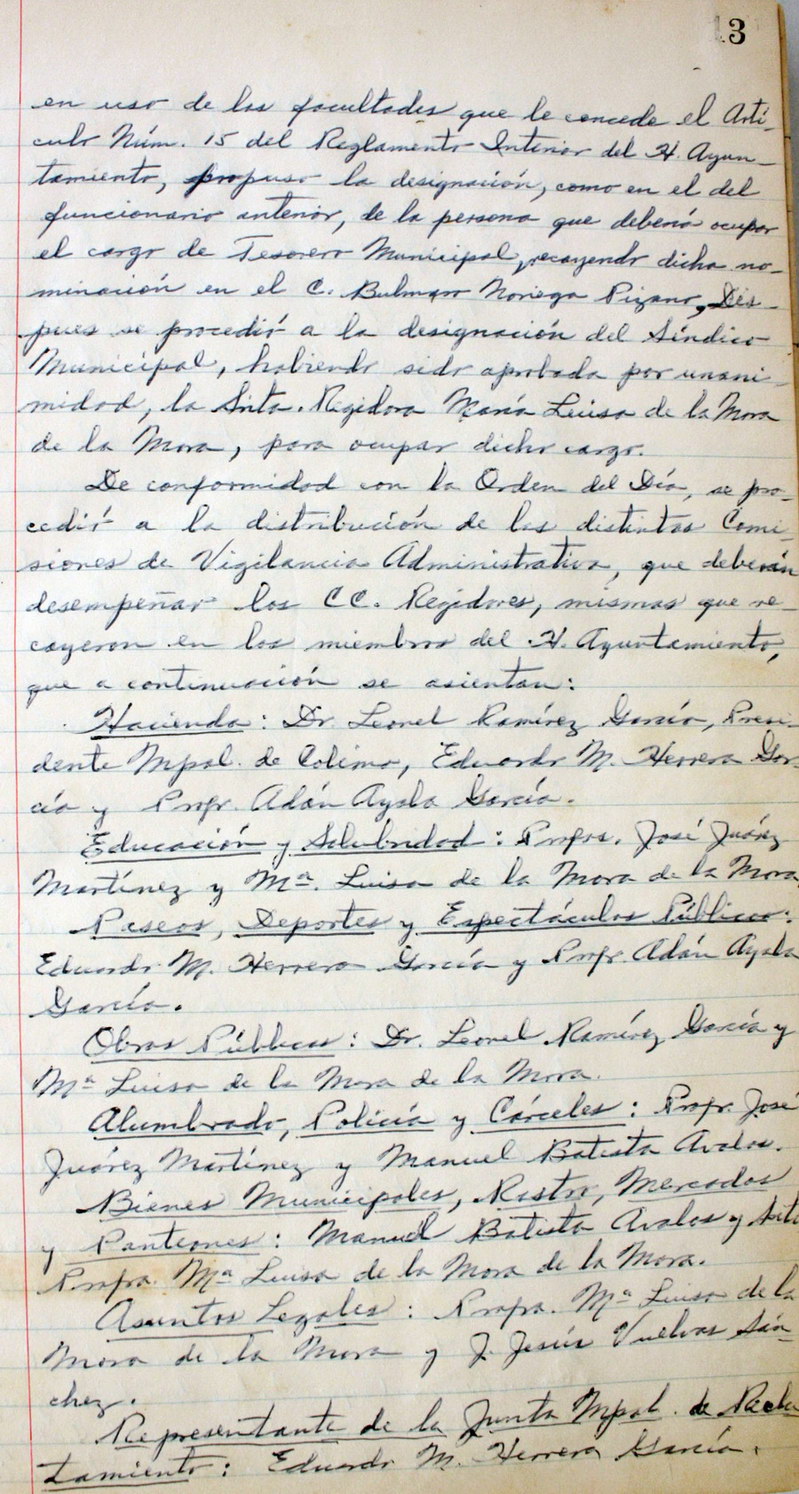 13
en uso de las facultades que le concede el Artí-
culo Núm. 15 del Reglamento Interior del H. Ayun-
tamiento, propuso la designación, como en el del
funcionario anterior, de la persona que deberá ocupar
el cargo de Tesorero Municipal, recayendo dicha no-
minación en el C. Bulmaro Noriega Pizano, Des-
pues se procedió a la designación del Síndico
Municipal, habiendo sido aprobada por unani-
midad, la Srita. Regidora María Luisa de la Mora
de la Mora, para ocupar dicho cargo.
De conformidad con la Orden del Día, se pro-
cedió a la distribución de las distintas Comi-
siones de Vigilancia Administrativa, que deberán
desempeñar los CC. Regidores, mismas que re-
cayeron en los miembros del H. Ayuntamiento,
que a continuación se asientan:
Hacienda: Dr. Leonel Ramírez García, Presi-
dente Mpal. de Colima, Eduardo M. Herrera Gar-
cía y Profr. Adán Ayala García.
Educación y Salubridad: Profrs. José Juárez
Martínez y Mª. Luisa de la Mora de la Mora
Paseos, Deportes y Espectáculos Públicos:
Eduardo M. Herrera García y Profr. Adán Ayala
García.
Obras Públicas: Dr. Leonel Ramírez García y
Mª Luisa de la Mora de la Mora.
Alumbrado, Policía y Cárceles: Profr. José
Juárez Martínez y Manuel Batista Avalos.
Bienes Municipales, Rastro, Mercados
y Panteones: Manuel Batista Avalos y Srita
Profra. Mª Luisa de la Mora de la Mora.
Asuntos Legales: Profra. Mª Luisa de la
Mora de la Mora y J. Jesús Vuelvas Sán-
chez.
Representante de la Junta Mpal. de Reclu
tamiento: Eduardo M. Herrera García.